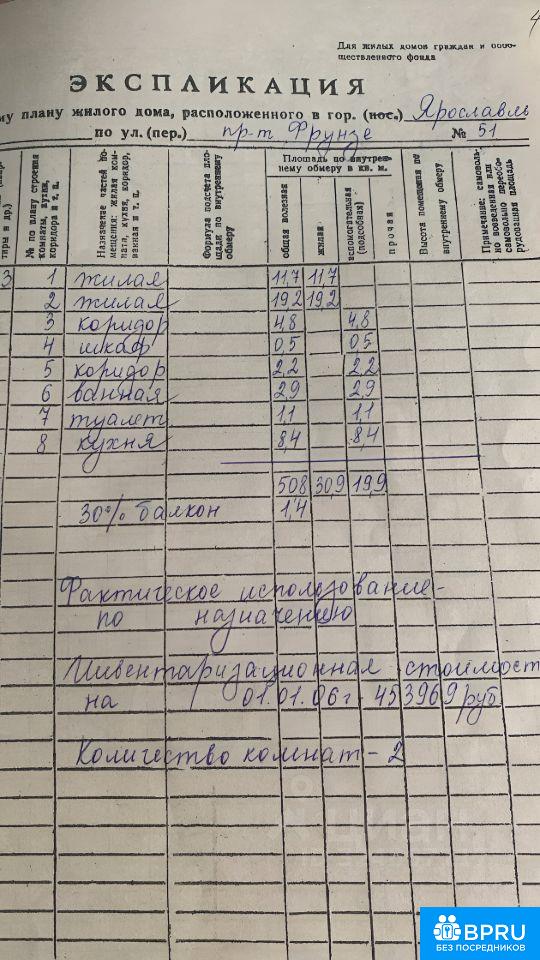 4
Для жилых домов граждан и обоб-
ществленного фонда
ЭКСПЛИКАЦИЯ
ому плану жилого дома, расположенного в гор. (пос.) Ярославль
по ул. (пер.) пр-т Фрунзе № 51
тиры и др.)
№ по плану строения комнаты, кухни, коридора и т. п.
Назначение частей помещения: жилая комната, кухня, коридор, ванная и т. п.
Формула подсчета площади по внутреннему обмеру
Площадь по внутреннему обмеру в кв. м.
общая полезная
жилая
вспомогательная (подсобная)
прочая
Высота помещения по внутреннему обмеру
Примечание: самовольно возведенная или самовольно переоборудованная площадь
3 1 жилая 11,7 11,7
2 жилая 19,2 19,2
3 коридор 4,8 4,8
4 шкаф 0,5 0,5
5 коридор 2,2 2,2
6 ванная 2,9 2,9
7 туалет 1,1 1,1
8 кухня 8,4 8,4
50,8 30,9 19,9
30% балкон 1,4
Фактическое использование-
по назначению
Инвентаризационная стоимост
на 01.01.06г. 453969 руб
Количество комнат - 2
BPRU
БЕЗ ПОСРЕДНИКОВ